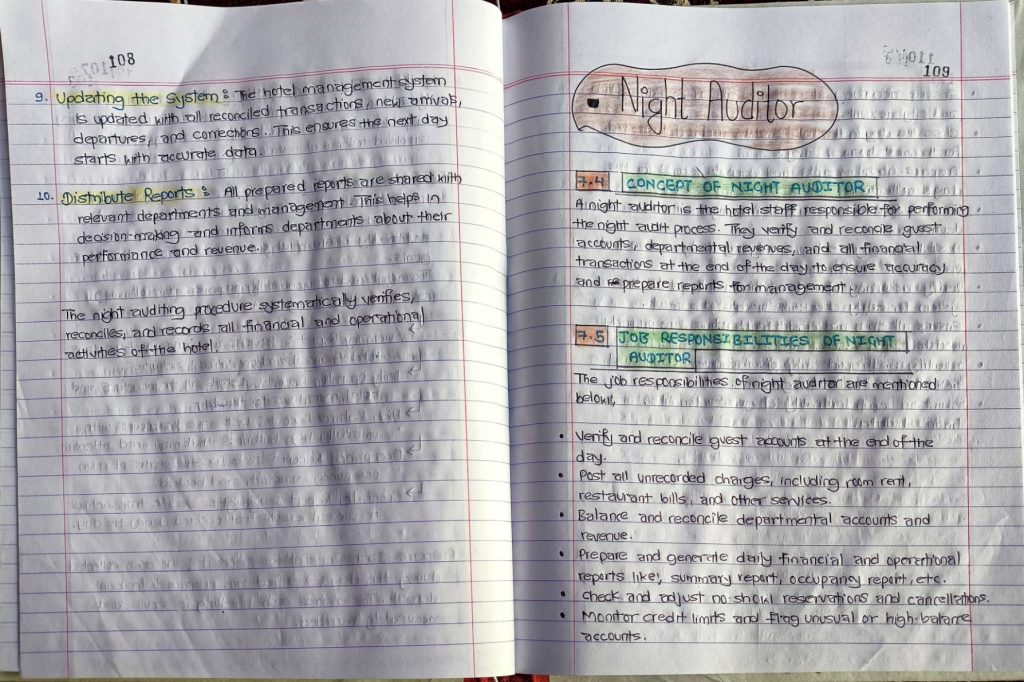 108
9. Updating the System : The hotel management system
is updated with all reconciled transactions, new arrivals,
departures, and corrections. This ensures the next day
starts with accurate data.
10. Distribute Reports : All prepared reports are shared with
relevant departments and management. This helps in
decision-making and informs departments about their
performance and revenue.
The night auditing procedure systematically verifies,
reconciles, and records all financial and operational
activities of the hotel.
109
• Night Auditor
7.4 CONCEPT OF NIGHT AUDITOR
A night auditor is the hotel staff responsible for performing
the night audit process. They verify and reconcile guest
accounts, departmental revenues, and all financial
transactions at the end of the day to ensure accuracy
and prepare reports for management.
7.5 JOB RESPONSIBILITIES OF NIGHT
AUDITOR
The job responsibilities of night auditor are mentioned
below,
• Verify and reconcile guest accounts at the end of the
day.
• Post all unrecorded charges, including room rent,
restaurant bills, and other services.
• Balance and reconcile departmental accounts and
revenue.
• Prepare and generate daily financial and operational
reports like, summary report, occupancy report, etc.
• Check and adjust no-show reservations and cancellations.
• Monitor credit limits and flag unusual or high-balance
accounts.